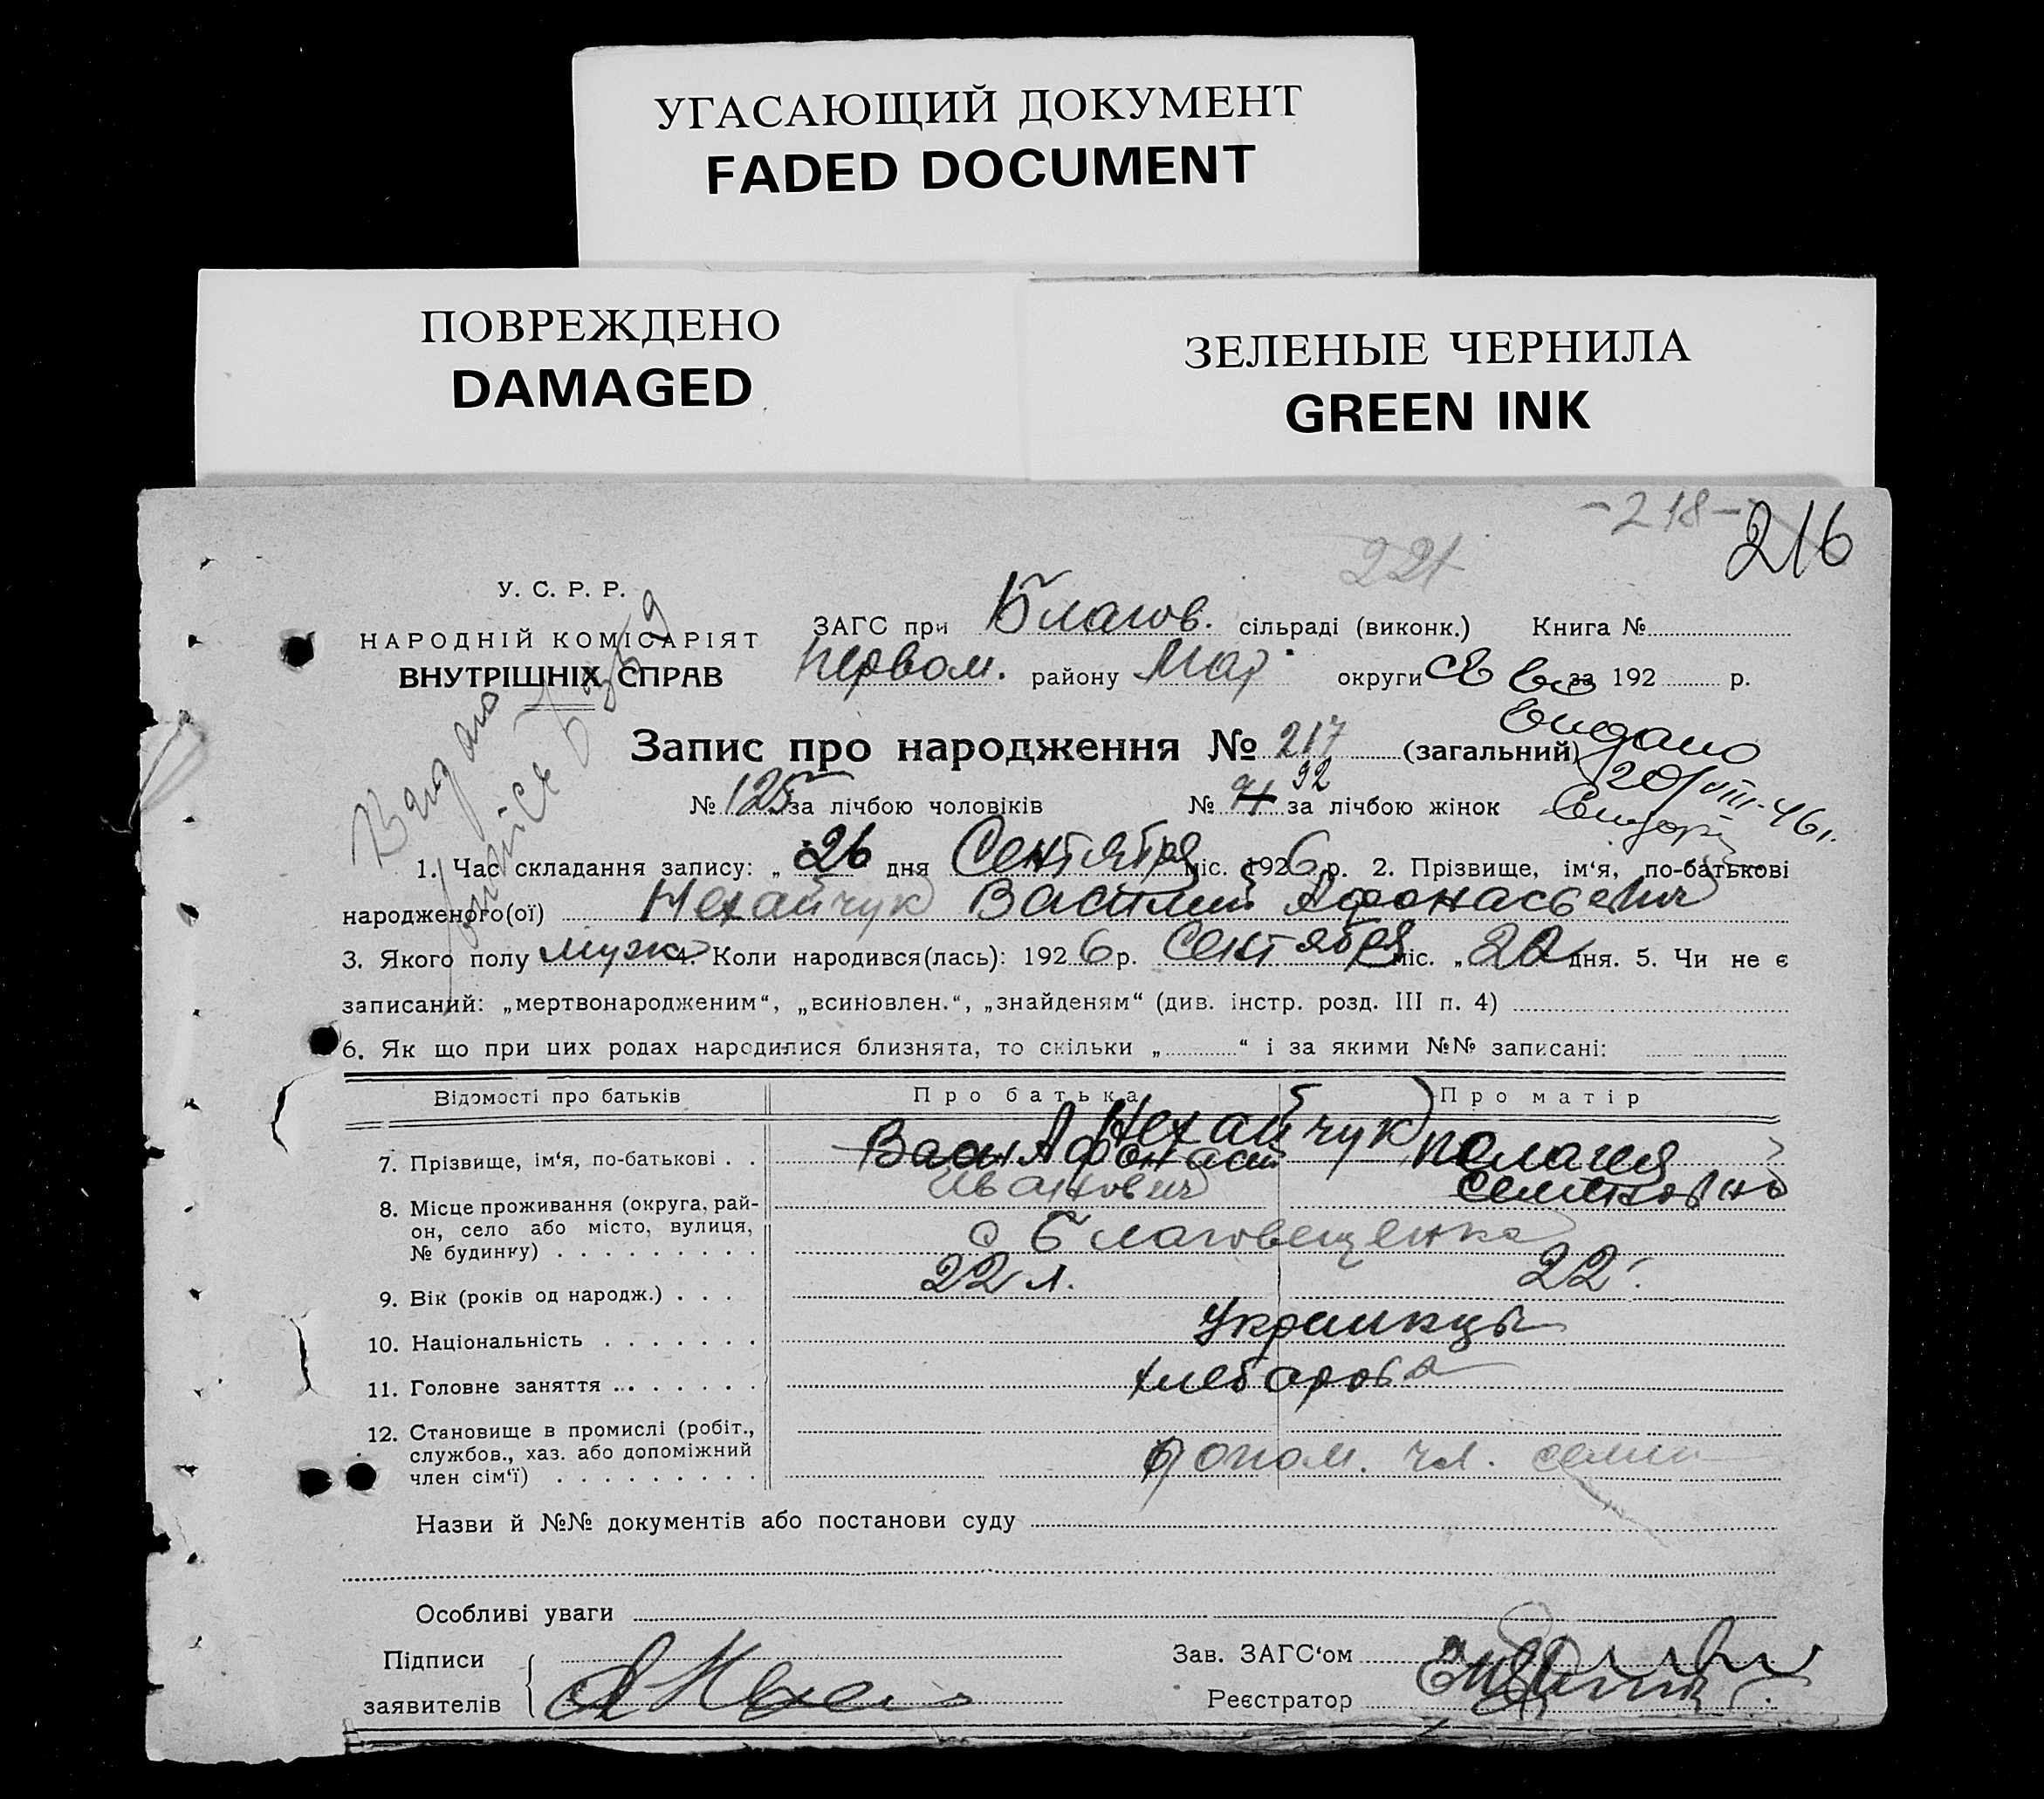 УГАСАЮЩИЙ ДОКУМЕНТ
FADED DOCUMENT
ПОВРЕЖДЕНО
DAMAGED
ЗЕЛЕНЫЕ ЧЕРНИЛА
GREEN INK
-218-
216
221
У. С. Р. Р.
НАРОДНІЙ КОМІСАРІЯТ
ВНУТРІШНІХ СПРАВ
ЗАГС при Благов. сільраді (виконк.) Книга №
Первом. району Мар. округи за 192 р.
Запис про народження № 217 (загальний)
Видано
20/VIII-46г.
№ 125 за лічбою чоловіків № 92 за лічбою жінок
1. Час складання запису: „ 26 дня Сентября міс. 1926 р. 2. Прізвище, ім‘я, по-батькові
народженого(ої) Нехайчук Василий Афонасьевич
3. Якого полу муж 4. Коли народився(лась): 1926 р. Сентября міс. „ дня. 5. Чи не є
записаний: „мертвонародженим“, „всиновлен.“, „знайденям“ (див. інстр. розд. III п. 4)
6. Як що при цих родах народилися близнята, то скільки „ “ і за якими №№ записані:
Відомості про батьків Про батька Про матір
Нехайчук
7. Прізвище, ім‘я, по-батькові . . Афонасий Пелагея
Иванович Семеновна
8. Місце проживання (округа, рай-
он, село або місто, вулиця,
№ будинку) с Благовещенка
9. Вік (років од народж.) . . . 22 л. 22
10. Національність Украинцы
11. Головне заняття хлебороб
12. Становище в промислі (робіт.,
службов., хаз. або допоміжний
член сім‘ї) допом. чл. семьи
Назви й №№ документів або постанови суду
Особливі уваги
Підписи
заявителів
Зав. ЗАГС‘ом
Реєстратор